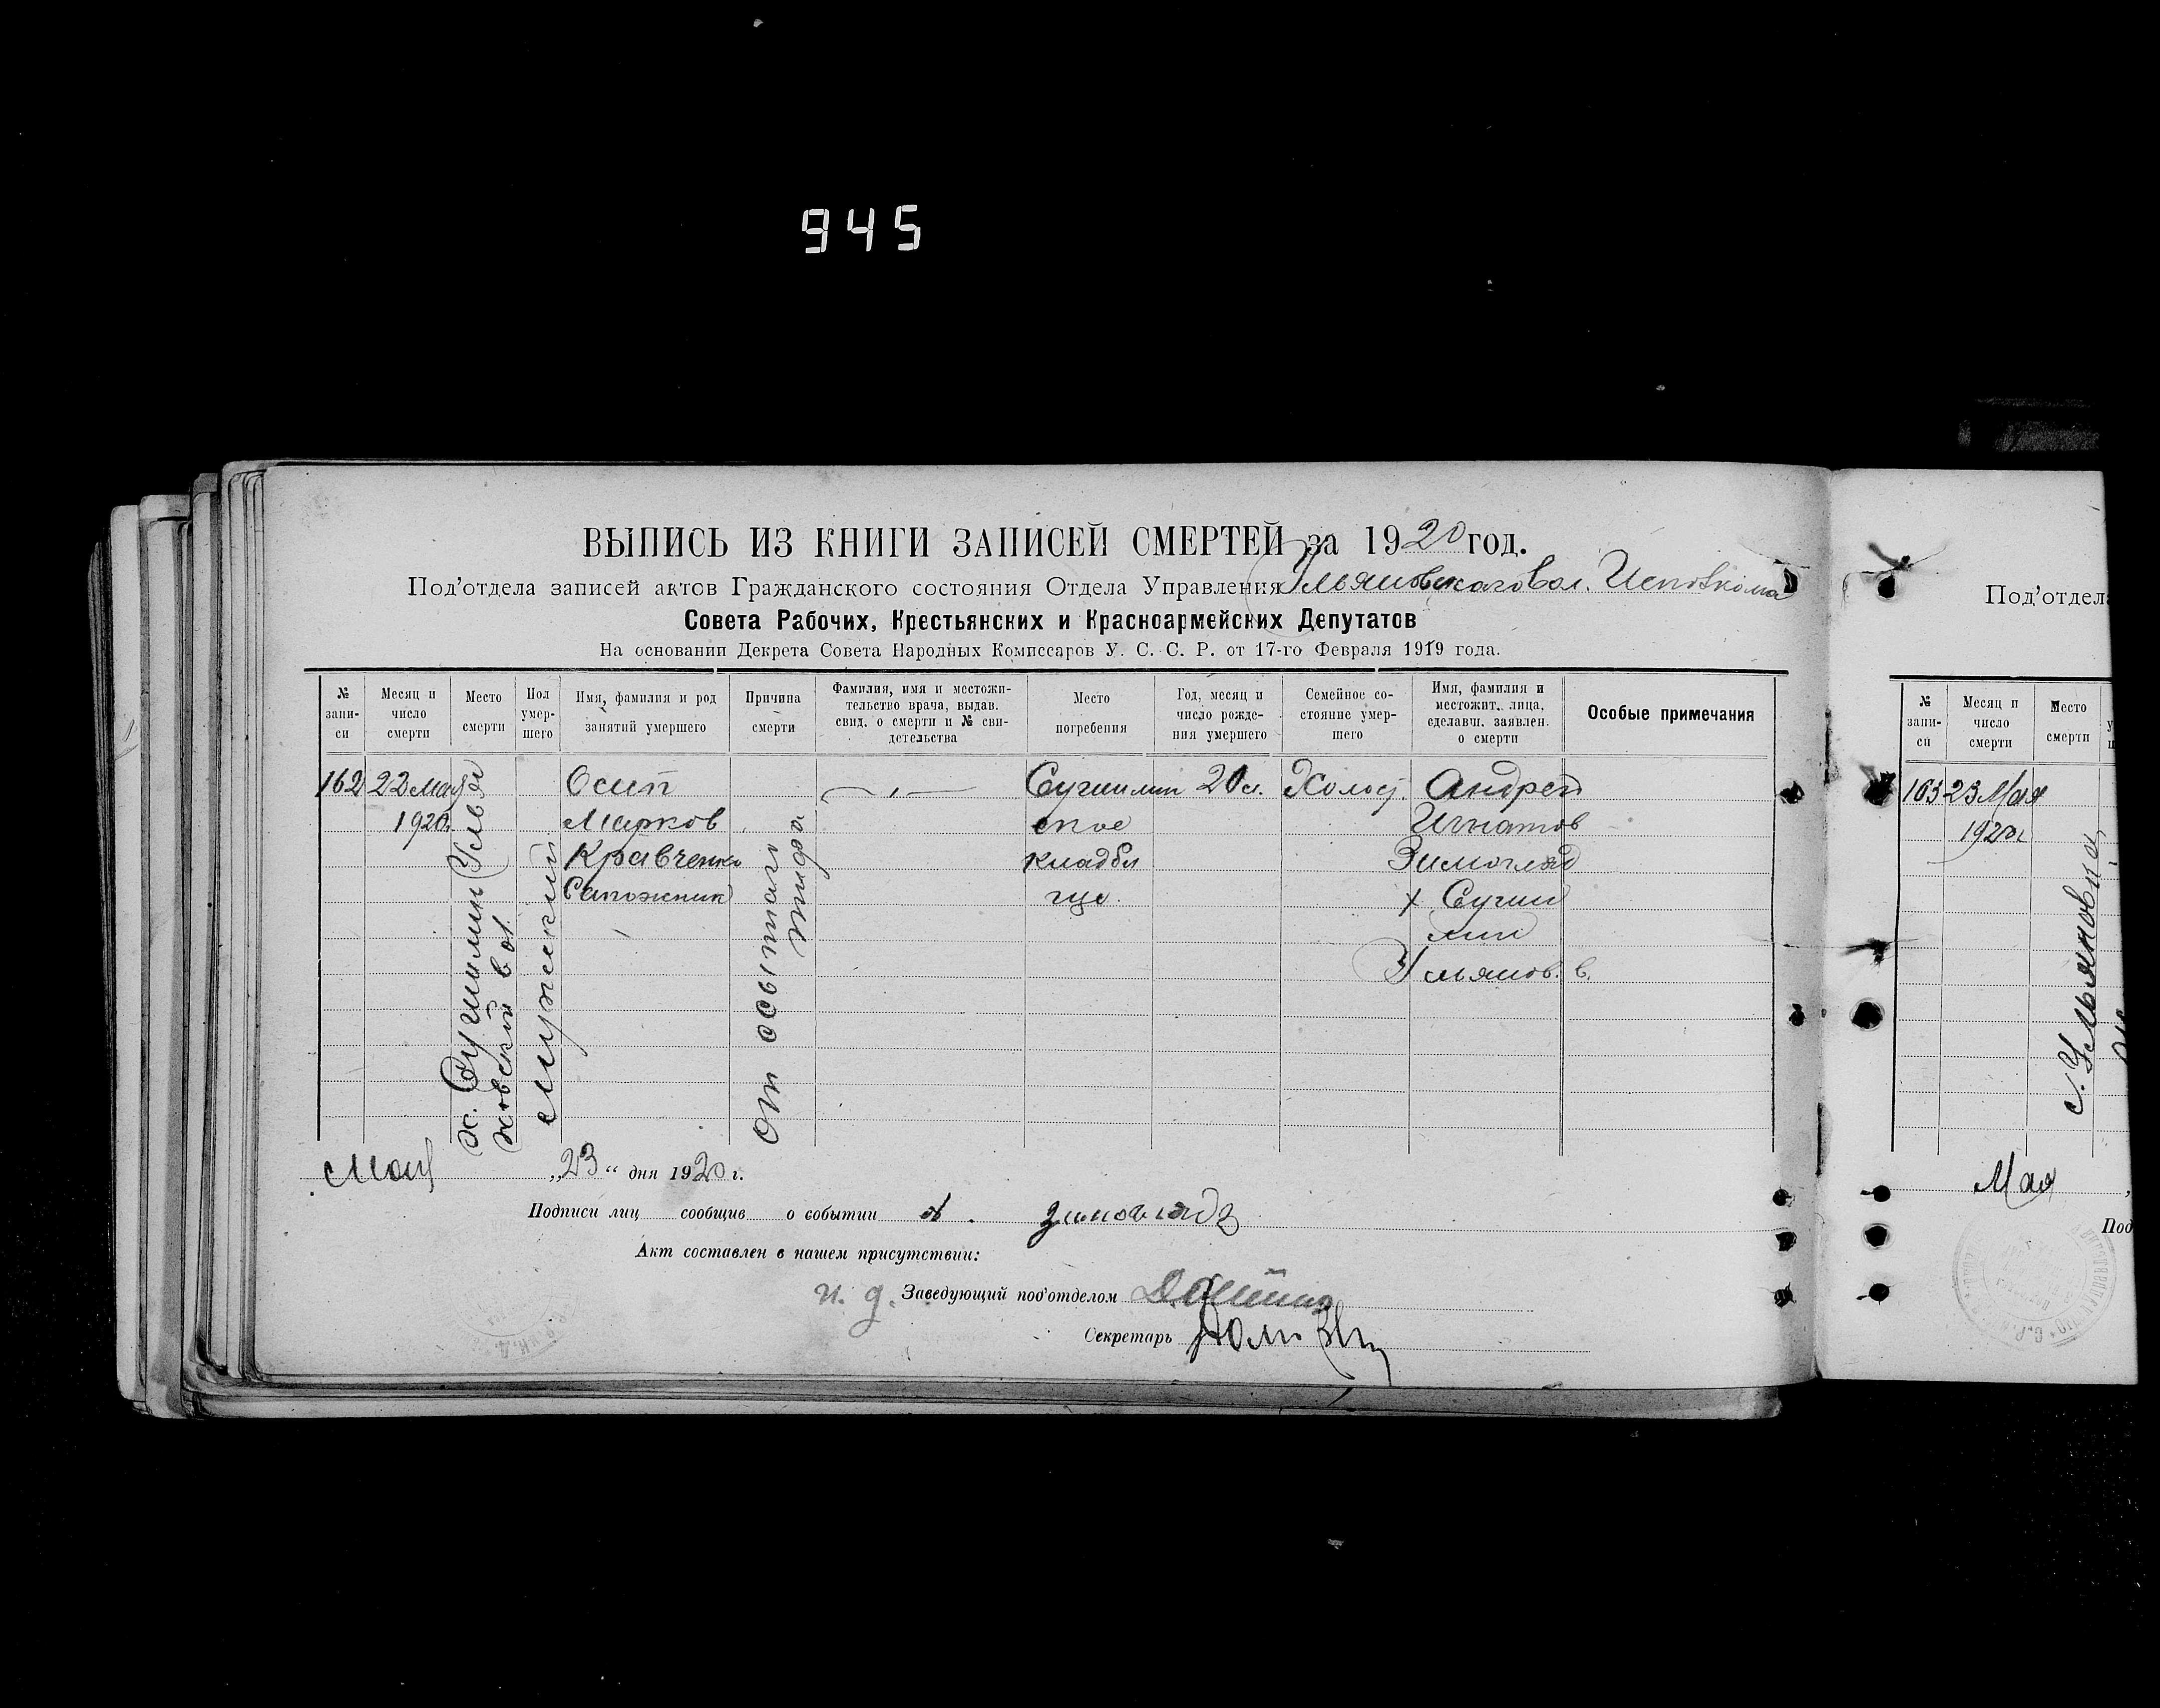 945
ВЫПИСЬ ИЗ КНИГИ ЗАПИСЕЙ СМЕРТЕЙ за 1920 год.
Под'отдела записей актов Гражданского состояния Отдела Управления Ульяновскаго Вол. Исполкома
Совета Рабочих, Крестьянских и Красноармейских Депутатов
На основании Декрета Совета Народных Комиссаров У. С. С. Р. от 17-го Февраля 1919 года.
№ запи- си
Месяц и число смерти
Место смерти
Пол умер- шего
Имя, фамилия и род занятий умершего
Причина смерти
Фамилия, имя и местожи- тельство врача, выдав. свид. о смерти и № сви- детельства
Место погребения
Год, месяц и число рожде- ния умершего
Семейное со- стояние умер- шего
Имя, фамилия и местожит. лица, сделавш. заявлен. о смерти
Особые примечания
162
22 Мая
1920
х.
Улья
вол.
Мужеский
Осип
Марков
Кравченко
Сапожник
От сыпнаго
тифа
ское
кладби
ще.
20 л.
Холост.
Андрей
Игнатов
Зимогляд
х
Ульянов. в.
Мая „23“ дня 1920 г.
Подписи лиц сообщив о событии А. Зимоглядъ
Акт составлен в нашем присутствии:
и. д. Заведующий под'отделом
Секретарь
Под'отдела
№ запи- си
Месяц и число смерти
Место смерти
163
23 Мая
1920 г.
с. Ульяновка
Мая
Под